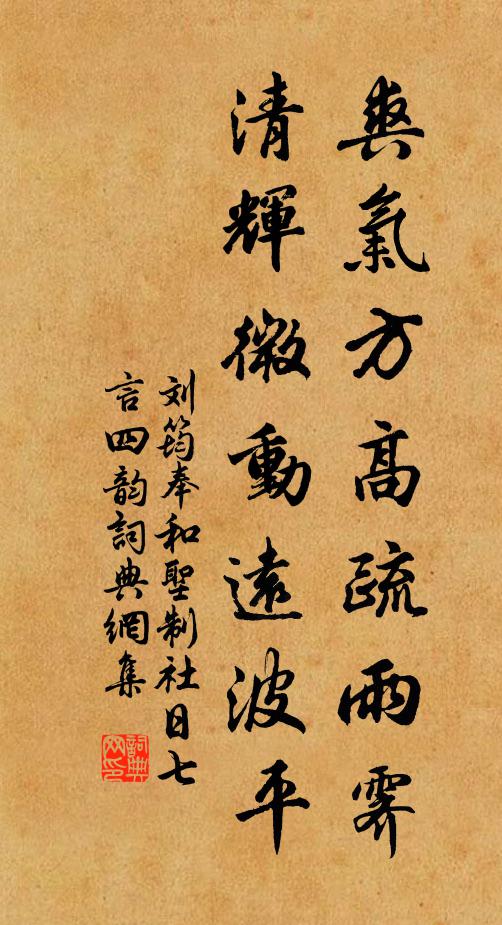 爽氣方高疏雨霽
清輝微動遠波平
刘筠奉和聖制社日七
言四韵詞典網集
詞典
网印